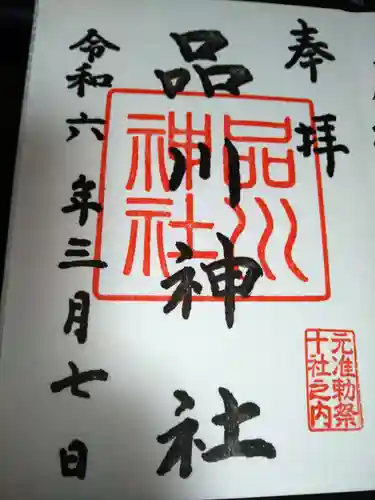 奉拝
品川神社
令和六年三月七日
品川
神社
元准勅祭
十社之内